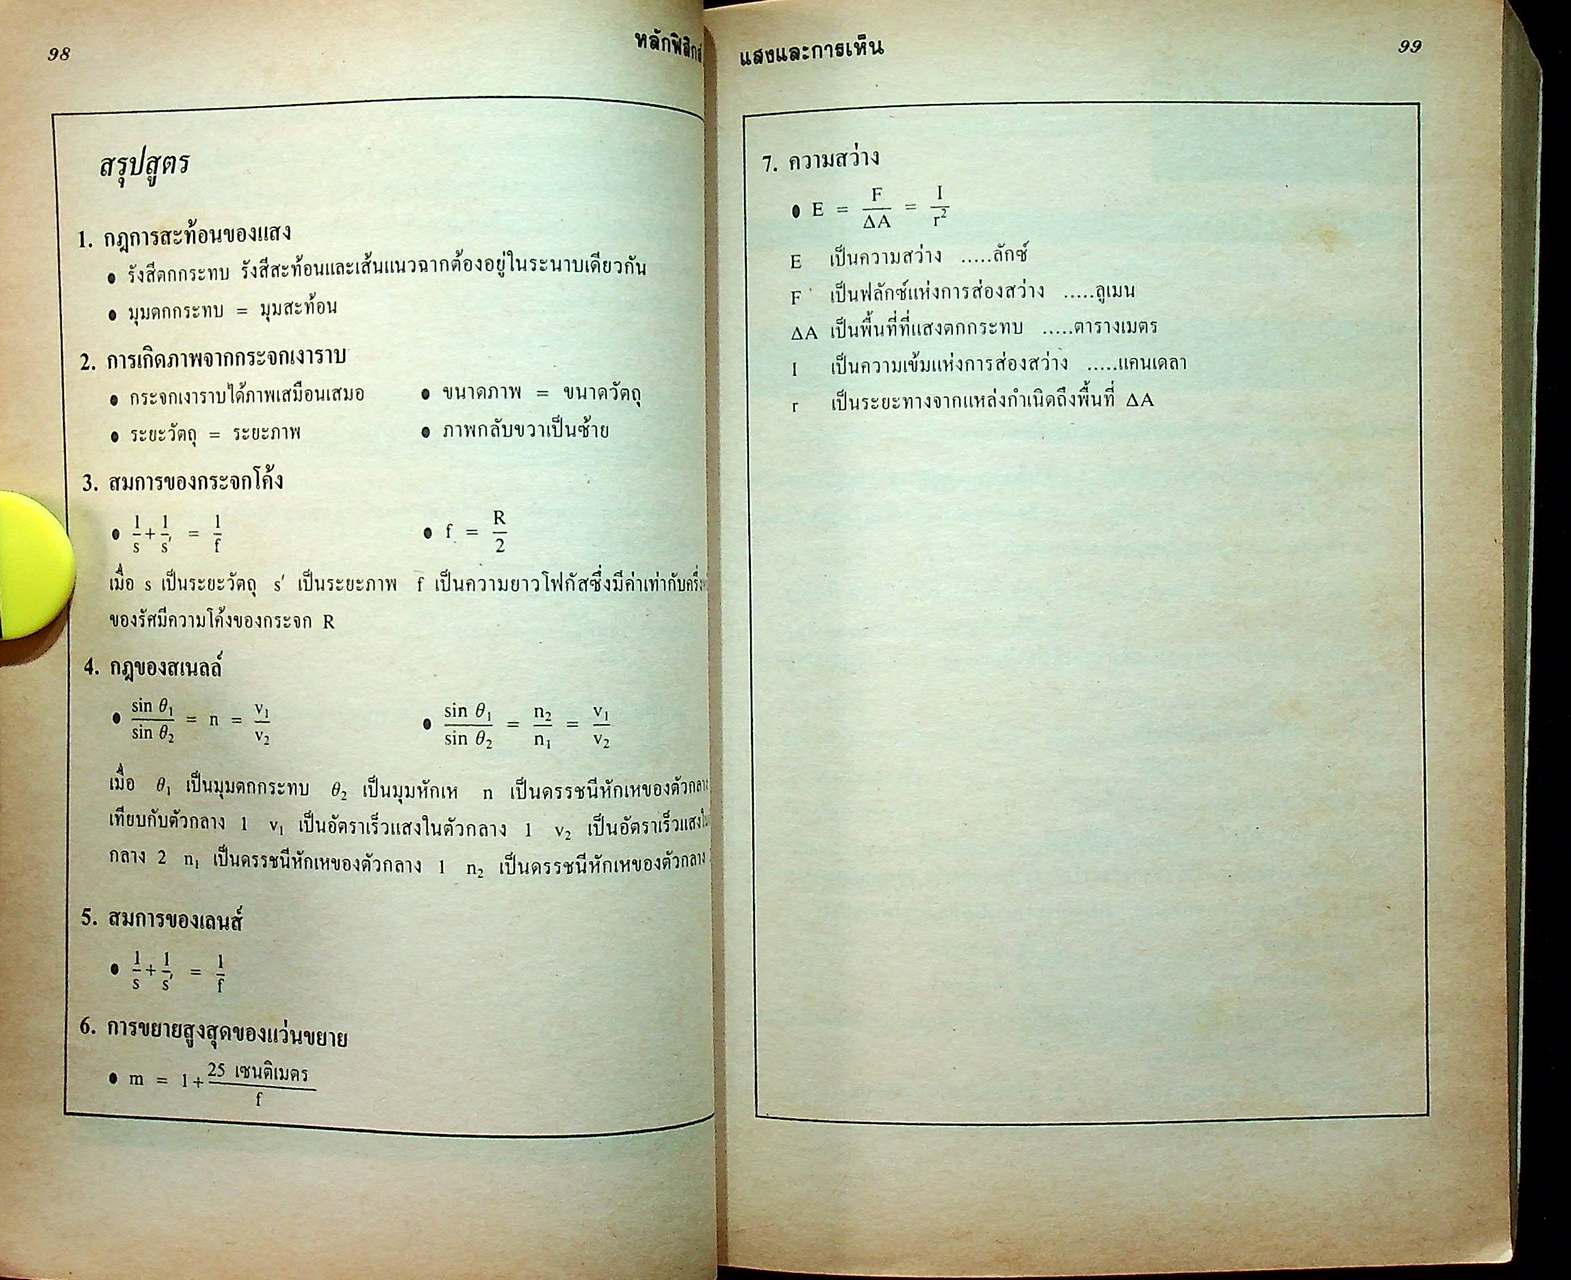 98
หลักฟิสิกส์
สรุปสูตร
1. กฎการสะท้อนของแสง
● รังสีตกกระทบ รังสีสะท้อนและเส้นแนวฉากต้องอยู่ในระนาบเดียวกัน
● มุมตกกระทบ = มุมสะท้อน
2. การเกิดภาพจากกระจกเงาราบ
● กระจกเงาราบได้ภาพเสมือนเสมอ ● ขนาดภาพ = ขนาดวัตถุ
● ระยะวัตถุ = ระยะภาพ ● ภาพกลับขวาเป็นซ้าย
3. สมการของกระจกโค้ง
● 1/s + 1/s' = 1/f ● f = R/2
เมื่อ s เป็นระยะวัตถุ s' เป็นระยะภาพ f เป็นความยาวโฟกัสซึ่งมีค่าเท่ากับครึ่ง
ของรัศมีความโค้งของกระจก R
4. กฎของสเนลล์
● sin θ₁/sin θ₂ = n = v₁/v₂ ● sin θ₁/sin θ₂ = n₂/n₁ = v₁/v₂
เมื่อ θ₁ เป็นมุมตกกระทบ θ₂ เป็นมุมหักเห n เป็นดรรชนีหักเหของตัวกลาง
เทียบกับตัวกลาง 1 v₁ เป็นอัตราเร็วแสงในตัวกลาง 1 v₂ เป็นอัตราเร็วแสงใน
กลาง 2 n₁ เป็นดรรชนีหักเหของตัวกลาง 1 n₂ เป็นดรรชนีหักเหของตัวกลาง
5. สมการของเลนส์
● 1/s + 1/s' = 1/f
6. การขยายสูงสุดของแว่นขยาย
● m = 1 + 25 เซนติเมตร/f
แสงและการเห็น
99
7. ความสว่าง
● E = F/ΔA = I/r²
E เป็นความสว่าง .....ลักซ์
F เป็นฟลักซ์แห่งการส่องสว่าง .....ลูเมน
ΔA เป็นพื้นที่ที่แสงตกกระทบ .....ตารางเมตร
I เป็นความเข้มแห่งการส่องสว่าง .....แคนเดลา
r เป็นระยะทางจากแหล่งกำเนิดถึงพื้นที่ ΔA